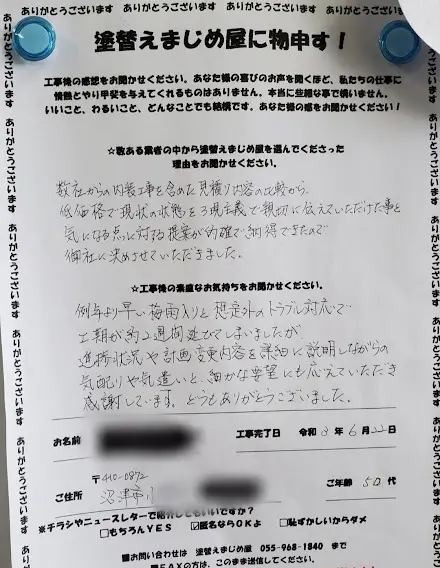 ありがとうございます ありがとうございます ありがとうございます ありがとうございます
塗替えまじめ屋に物申す！
工事後の感想をお聞かせください。あなた様の喜びのお声を聞くほど、私たちの仕事に
情熱とやり甲斐を与えてくれるものはありません。本当に些細な事で構いません。
いいこと、わるいこと、どんなことでも結構です。あなた様の感をお聞かせください！
☆数ある業者の中から塗替えまじめ屋を選んでくださった
理由をお聞かせください。
数社からの内装工事を含めた見積り内容の比較から、
低価格で現状の状態を3現主義で親切に伝えていただけた事と
気になる点に対する提案が的確で納得できたので
御社に決めさせていただきました。
☆工事後の素直なお気持ちをお聞かせください。
例年より早い梅雨入りと想定外のトラブル対応で
工期が約2週間延びてしまいましたが
進捗状況や計画変更内容を詳細に説明しながらの
気配りや気遣いと、細かな要望にも応えていただき
感謝しています。どうもありがとうございました。
お名前
工事完了日 令和3年6月22日
〒410-0872
ご住所 沼津市
ご年齢 50代
※チラシやニュースレターで紹介してもいいですか？
□もちろんYES ☑匿名ならOKよ □恥ずかしいからダメ
■お問い合わせは 塗替えまじめ屋 055-968-1840 まで
■FAXの方は、このまま送信してください。
ありがとうございます ありがとうございます ありがとうございます ありがとうございます
ありがとうございます ありがとうございます ありがとうございます ありがとうございます